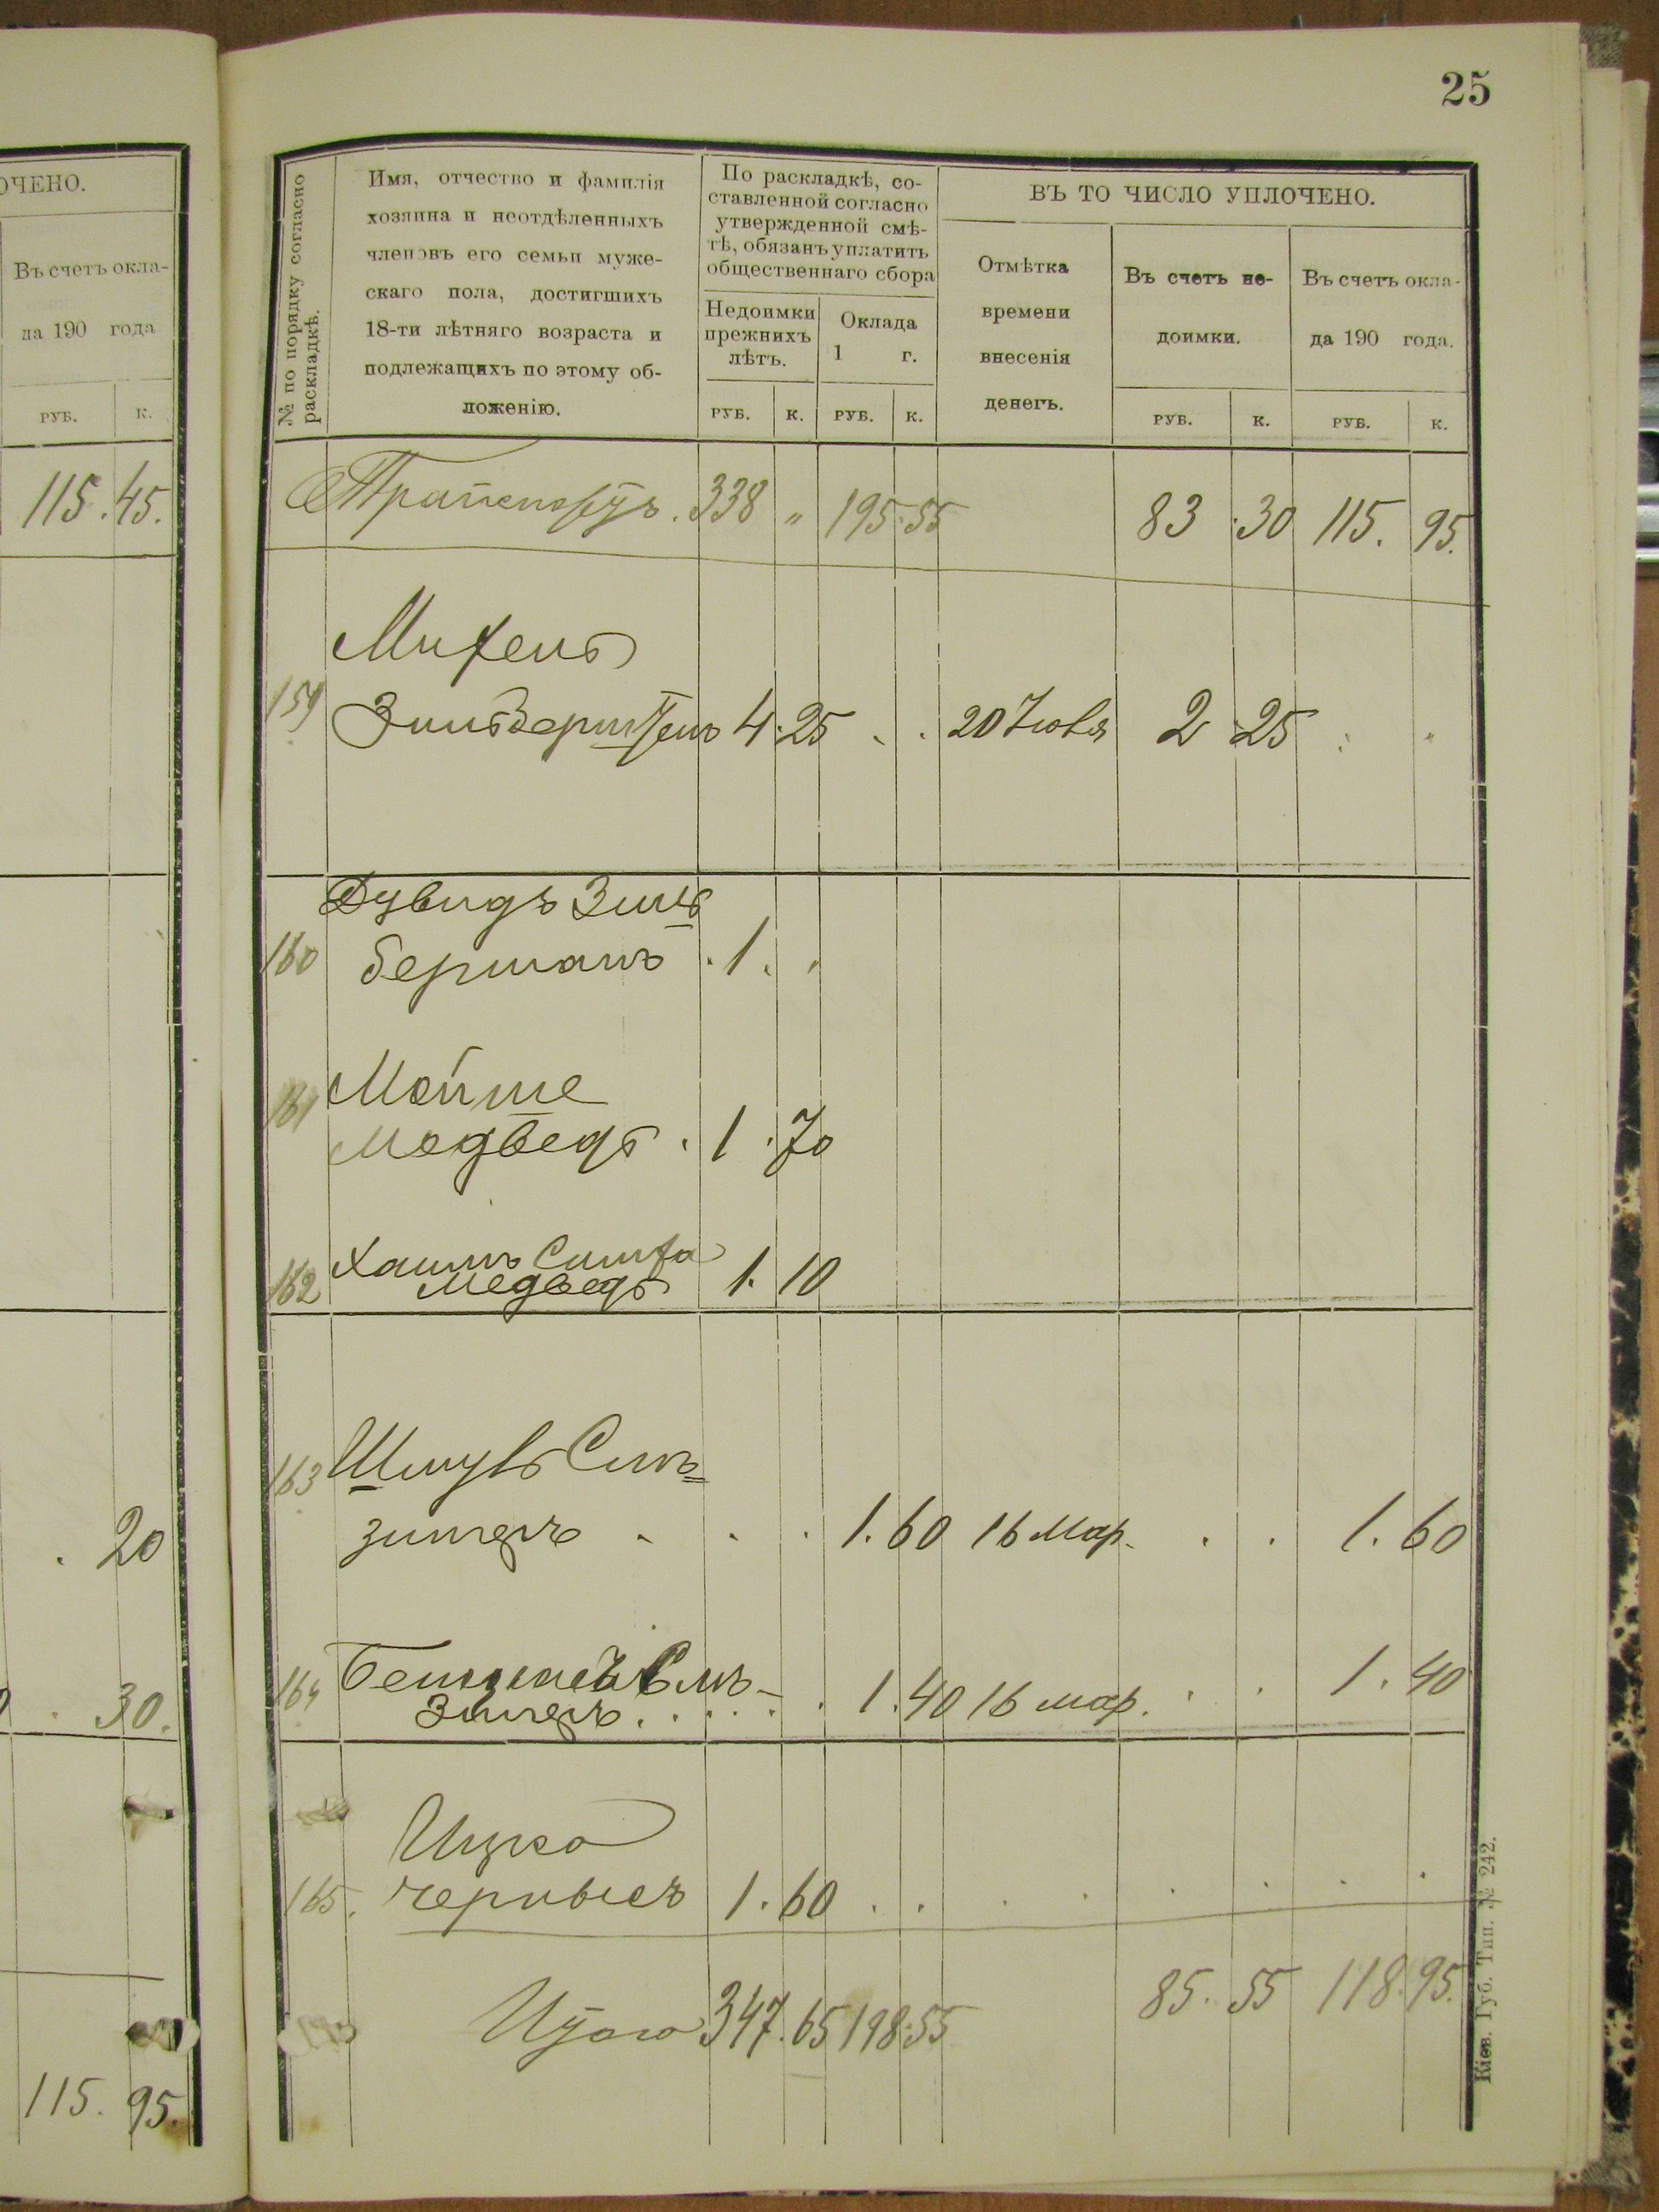 25
ОЧЕНО.
Въ счетъ окла-
да 190 года
РУБ. К.
115.45.
. 20
. 30.
115. 95.
№ по порядку согласно
раскладкѣ.
Имя, отчество и фамилія
хозяина и неотдѣленныхъ
членовъ его семьи муже-
скаго пола, достигшихъ
18-ти лѣтняго возраста и
подлежащихъ по этому об-
ложенію.
По раскладкѣ, со-
ставленной согласно
утвержденной смѣ-
тѣ, обязанъ уплатить
общественнаго сбора
Недоимки
прежнихъ
лѣтъ.
Оклада
1 г.
РУБ. К. РУБ. К.
ВЪ ТО ЧИСЛО УПЛОЧЕНО.
Отмѣтка
времени
внесенія
денегъ.
Въ счетъ не-
доимки.
РУБ. К.
Въ счетъ окла-
да 190 года.
РУБ. К.
Транспортъ. 338 " 195.55 83.30 115. 95.
Михель
159 Зильберштейнъ 4.25 . . 20 Июля 2 25 . "
Дувидъ Зиль
160 берманъ .1. .
161 Мойше
Медведь . 1.70
162 Хаимъ Симха
Медведь 1. 10
163 Шмуль Синъ
зингеръ . . . 1.60 16 Мар. . . 1. 60
164 Синъ- . 1.40 16 мар. . . 1.40
зингеръ . . . . .
Ицко
165. Черныесъ 1.60 . . . . . .
Итого 347.65 198.55 85. 55 118.95.
Кіев. Губ. Тип. № 242.